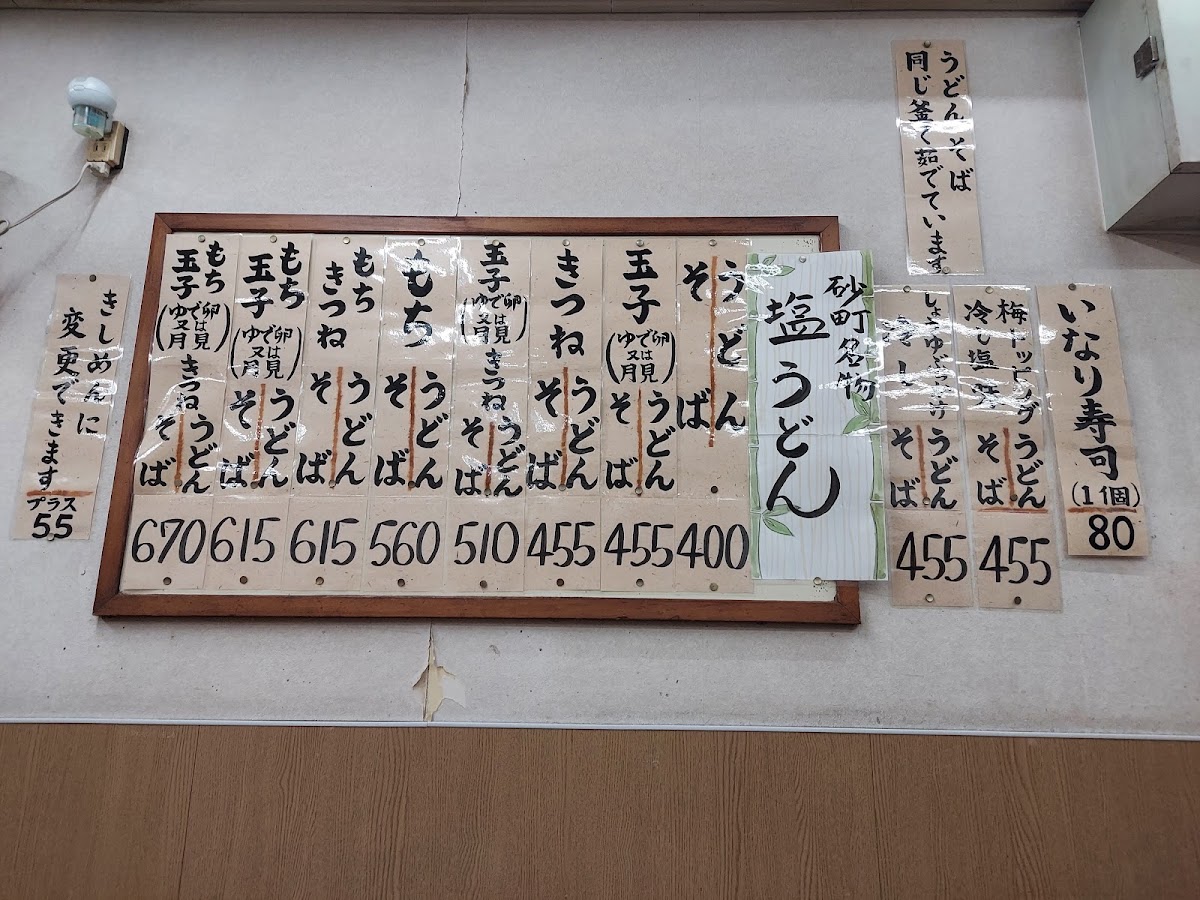 うどんそば
同じ釜で茹でています
いなり寿司
(1個)
80
梅トッピング
冷し塩
うどん
そば
455
冷し
うどん
そば
455
砂町名物
塩うどん
うどん
そば
400
玉子
(卵では見
ゆで又月)
うどん
そば
455
きつね
うどん
そば
455
玉子
(卵では見
ゆで又月)
きつね
うどん
そば
510
もち
うどん
そば
560
もち
きつね
うどん
そば
615
もち
玉子
(卵では見
ゆで又月)
うどん
そば
615
もち
玉子
(卵では見
ゆで又月)
きつね
うどん
そば
670
きしめんに
変更できます
プラス
55